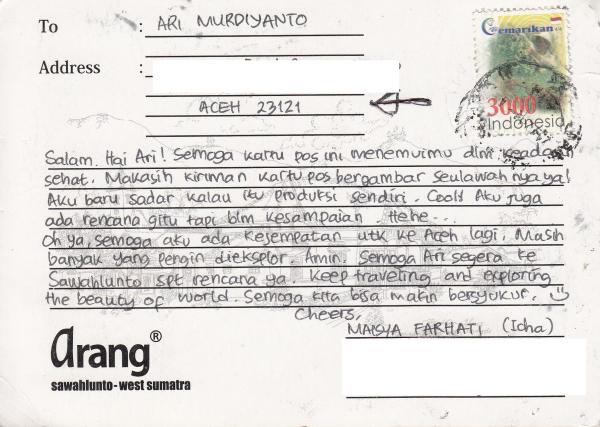 To : ARI MURDIYANTO
Address :
ACEH 23121
Gemarikan
3000
Indonesia
Salam. Hai Ari! Semoga kartu pos ini menemuimu dlm keadaan
sehat. Makasih kiriman kartu pos bergambar seulawah nya ya!
Aku baru sadar kalau itu produksi sendiri. Cool! Aku juga
ada rencana gitu tapi blm kesampaian. Hehe...
Oh ya, semoga aku ada kesempatan utk ke Aceh lagi. Masih
banyak yang pengin dieksplor. Amin. Semoga Ari segera ke
Sawahlunto spt rencana ya. Keep traveling and exploring
the beauty of world. Semoga kita bisa makin bersyukur.
Cheers,
MAISYA FARHATI (Icha)
arang®
sawahlunto - west sumatra